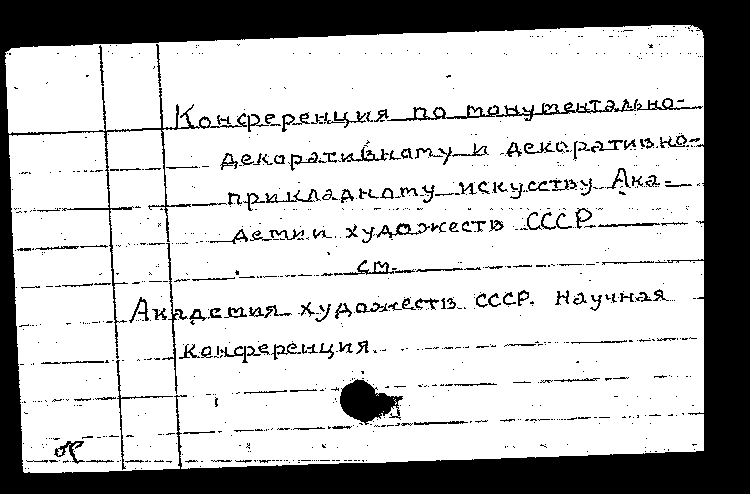 Конференция по монументально-
декоративному и декоративно-
прикладному искусству Ака-
демии художеств СССР
см.
Академия художеств СССР. Научная
конференция.